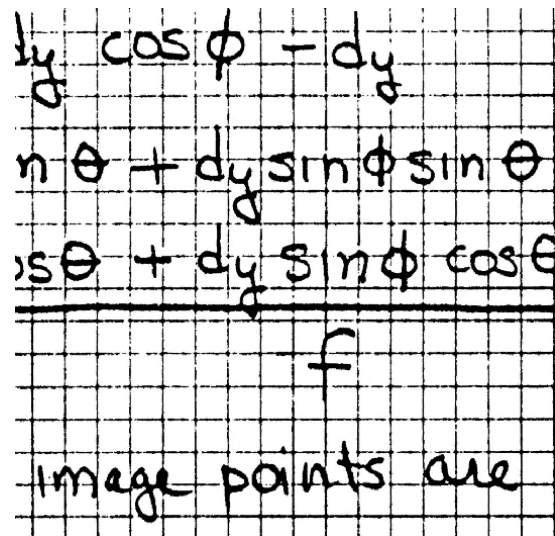 dy cos ϕ - dy
n θ + dy sin ϕ sin θ
os θ + dy sin ϕ cos θ
f
image points are